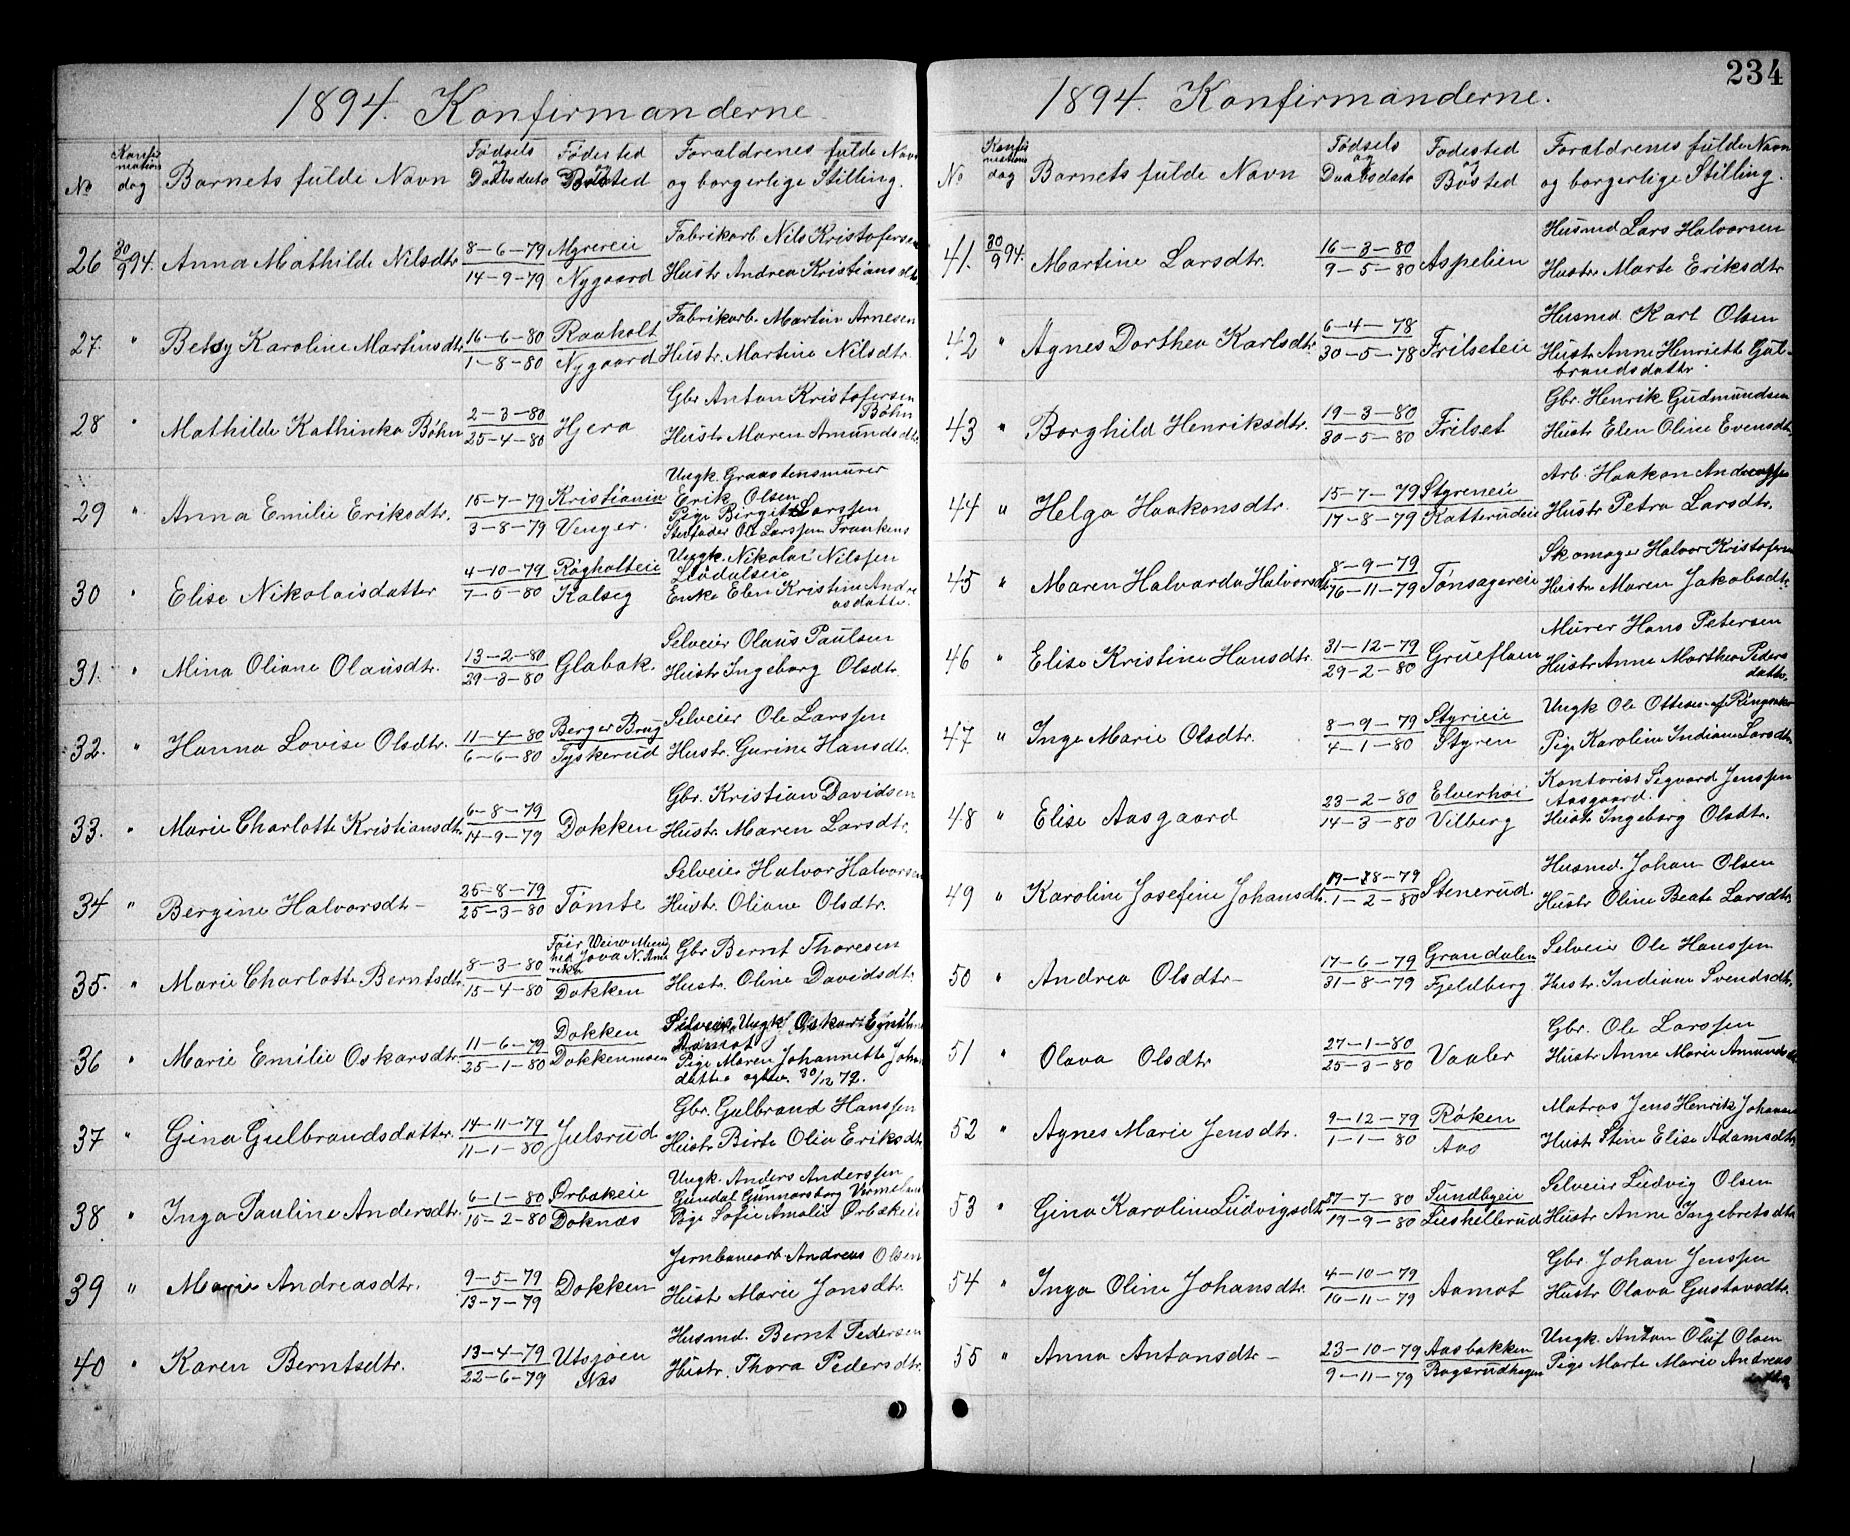 1894. Konfirmanderne
No
Konfirmations dag
Barnets fulde Navn
Fødsels og Daabsdato
Fødested og Bosted
Forældrenes fulde Navn og borgerlige Stilling.
26 30/9 94. Anna Mathilde Nilsdtr. 8-6-79 Myrereie Fabrikarb. Nils Kristofersen
14-9-79 Nygaard Hustr. Andrea Kristiansdtr
27. " Betsy Karoline Martinsdtr. 16-6-80 Raaholt Fabrikarb. Martin Arnesen
1-8-80 Nygaard Hustr. Martine Nilsdtr.
28 " Mathilde Kathinka Bøhn 2-3-80 Hjera Gbr Anton Kristofersen Bøhn
25-4-80 Hustr. Maren Amundsdtr.
29 " Anna Emilie Eriksdtr. 15-7-79 Kristiania Ungk. Graastensmurer
Erik Olsen
3-8-79 Venger. Pige Birgitte Larssen
Stedfader Ole Larssen
30 " Elise Nikolaisdatter 4-10-79 Røgholteie Ungk. Nikolai Nilssen
7-5-80 Kalseg Enke Elen Kristine Andreasdatter.
31. " Mina Oliane Olausdtr. 13-2-80 Glabak. Selveier Olaus Paulsen
29-3-80 Hustr Ingeborg Olsdtr.
32. " Hanna Lovise Olsdtr. 11-4-80 Berger Brug Selveier Ole Larssen
6-6-80 Tyskerud Hustr. Gurine Hansdtr.
33. " Marie Charlotte Kristiansdtr. 6-8-79 Dokken Gbr. Kristian Davidsen
14-9-79 Hustr. Maren Larsdtr.
34 " Bergine Halvorsdtr- 25-8-79 Tømte Selveier Halvor Halvorsen
25-3-80 Hustr. Oliane Olsdtr.
35. " Marie Charlotte Berntsdtr. 8-3-80 Jova N. Amerika Gbr Bernt Thoresen
15-4-80 Dokken Hustr. Oline Davidsdtr.
36 " Marie Emilie Oskarsdtr. 11-6-79 Dokken Ungk. Oskar
25-1-80 Dokkenmoen Pige Maren Johannette Johansdatter 30/12 79.
37 " Gina Gulbrandsdatter. 14-11-79 Julsrud Gbr. Gulbrand Hanssen
11-1-80 Hustr Birte Olia Eriksdtr
38 " Inga Pauline Andersdtr. 6-1-80 Ørbækeie Ungk. Anders Anderssen
Gunnarsborg Vermeland
15-2-80 Doknæs Pige Sofie Amalie Ørbækeie
39 " Marie Andreasdtr. 9-5-79 Dokken Jernbanearb. Andreas Olsen
13-7-79 Hustr Marie Jonsdtr.
40 " Karen Berntsdtr. 13-4-79 Utsjøen Husmd. Bernt Pedersen
22-6-79 Næs Hustr. Thora Pedersdtr.
234
1894. Konfirmanderne.
No
Konfirmations dag
Barnets fulde Navn
Fødsels og Daabsdato
Fødested og Bosted
Forældrenes fulde Navn og borgerlige Stilling.
41. 30/9 94. Martine Larsdtr. 16-3-80 Aspelien Husmd Lars Halvorsen
9-5-80 Hustr. Marte Eriksdtr
42 " Agnes Dorthea Karlsdtr. 6-4-78 Frilseteie Husmd. Karl Olsen
30-5-78 Hustr Anne Henriette Gulbrandsdattr.
43 " Borghild Henriksdtr. 19-3-80 Frilset Gbr. Henrik Gudmundsen
30-5-80 Hustr Elen Oline Evensdtr.
44 " Helga Haakonsdtr. 15-7-79 Styreneie Arb. Haakon Andreassen
17-8-79 Katterudeie Hustr Petra Larsdtr.
45 " Maren Halvarda Halvorsdtr. 8-9-79 Tønsagereie Skomager Halvor Kristofersen
16-11-79 Hustr Maren Jakobsdtr.
46 " Elise Kristine Hansdtr. 31-12-79 Grueflaen Murer Hans Petersen
29-2-80 Hustr Anne Marthea Pedersdatter.
47 " Inge Marie Olsdtr. 8-9-79 Styrieie Ungk Ole Ottesen af Ringsaker
4-1-80 Styren Pige Karoline Indiane Larsdtr
48 " Elise Aasgaard 23-2-80 Elverhøi Kontorist Segvard Jenssen
Aasgaard.
14-3-80 Vilberg Hustr Ingeborg Olsdtr.
49 " Karoline Josefine Johansdtr. 19-8-79 Stenerud Husmd. Johan Olsen
1-2-80 Hustr Oline Beate Larsdtr.
50 " Andrea Olsdtr- 17-6-79 Grandalen Selveier Ole Hanssen
31-8-79 Fjeldberg Hustr. Indiane Svendsdtr.
51 " Olava Olsdtr 27-1-80 Vaaler Gbr. Ole Larssen
25-3-80 Hustr Anne Marie Amundsdtr
52 " Agnes Marie Jensdtr. 9-12-79 Røken Matros Jens Henrik Johansen
1-1-80 Aas Hustr Stine Elise Adamsdtr
53 " Gina Karoline Ludvigsdtr. 27-7-80 Sundbyeie Selveier Ludvig Olsen
19-9-80 Lieshellerud Hustr Anne Ingebretsdtr
54 " Inga Oline Johansdtr. 4-10-79 Aamot Gbr Johan Jenssen
16-11-79 Hustr Olava Gustavsdtr.
55 " Anna Antonsdtr- 23-10-79 Aasbakken Ungk. Anton Oluf Olsen
9-11-79 Bogsrudhagen Pige Marte Marie Andreasdatter